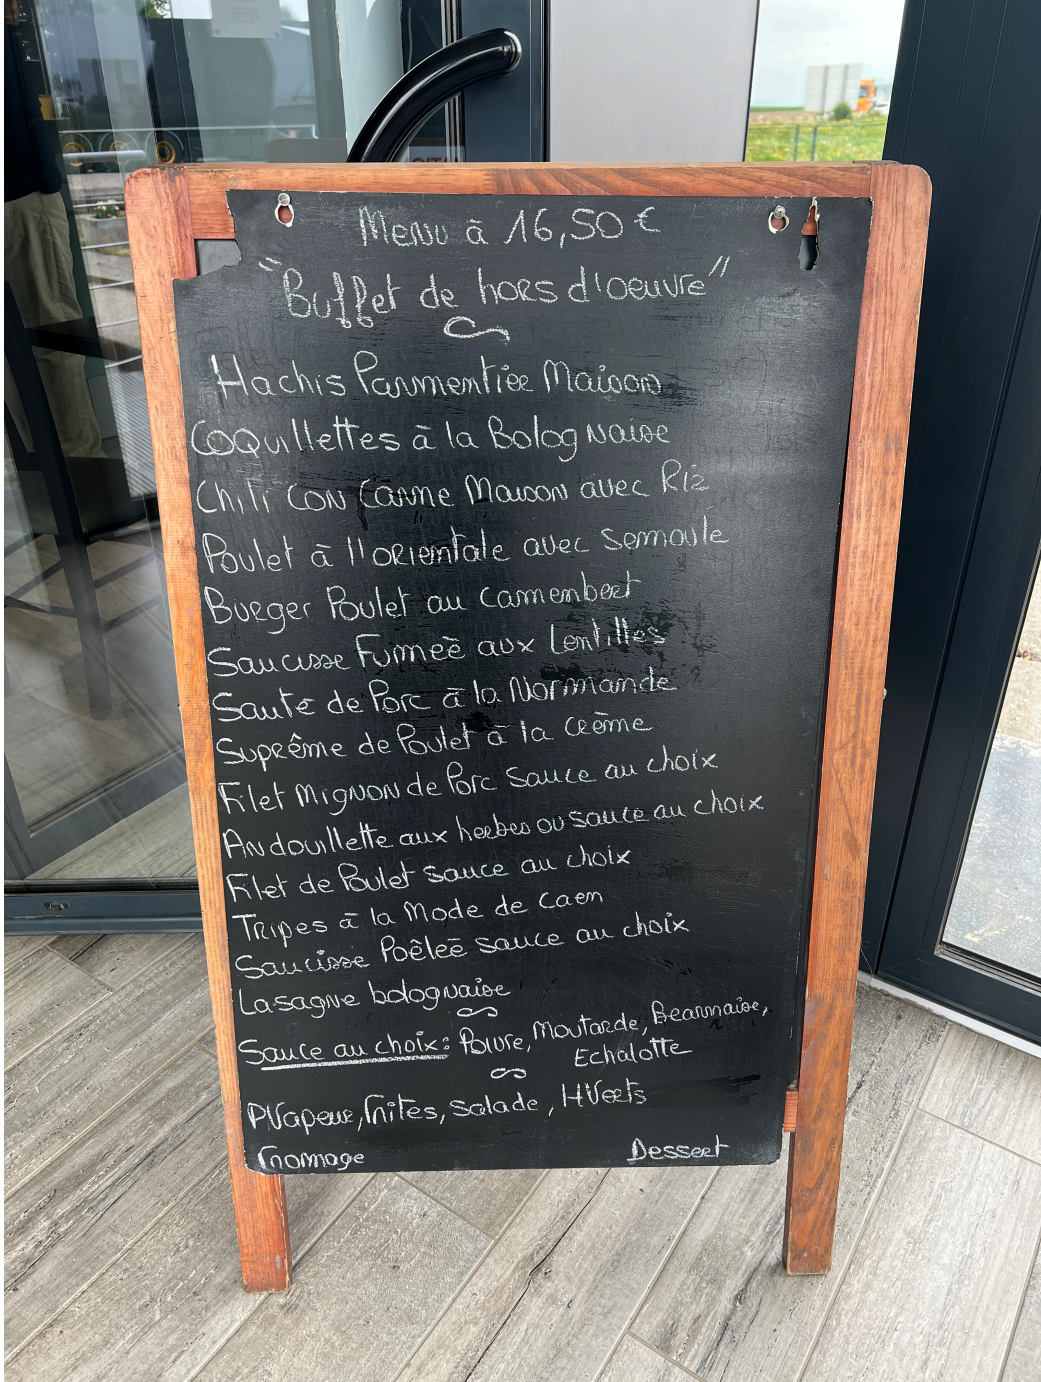 Menu à 16,50 €
"Buffet de hors d'oeuvre"
Hachis Parmentier Maison
Coquillettes à la Bolognaise
Chili Con Carne Maison avec Riz
Poulet à l'orientale avec semoule
Burger Poulet au Camembert
Saucisse Fumeè aux Lentilles
Sauté de Porc à la Normande
Suprême de Poulet à la Crème
Filet Mignon de Porc Sauce au choix
Andouillette aux herbes ou sauce au choix
Filet de Poulet sauce au choix
Tripes à la Mode de Caen
Saucisse Poêleè sauce au choix
Lasagne bolognaise
Sauce au choix: Poivre, Moutarde, Bearnaise,
Echalotte
PVapeur, Frites, salade, HVerts
Fromage Dessert